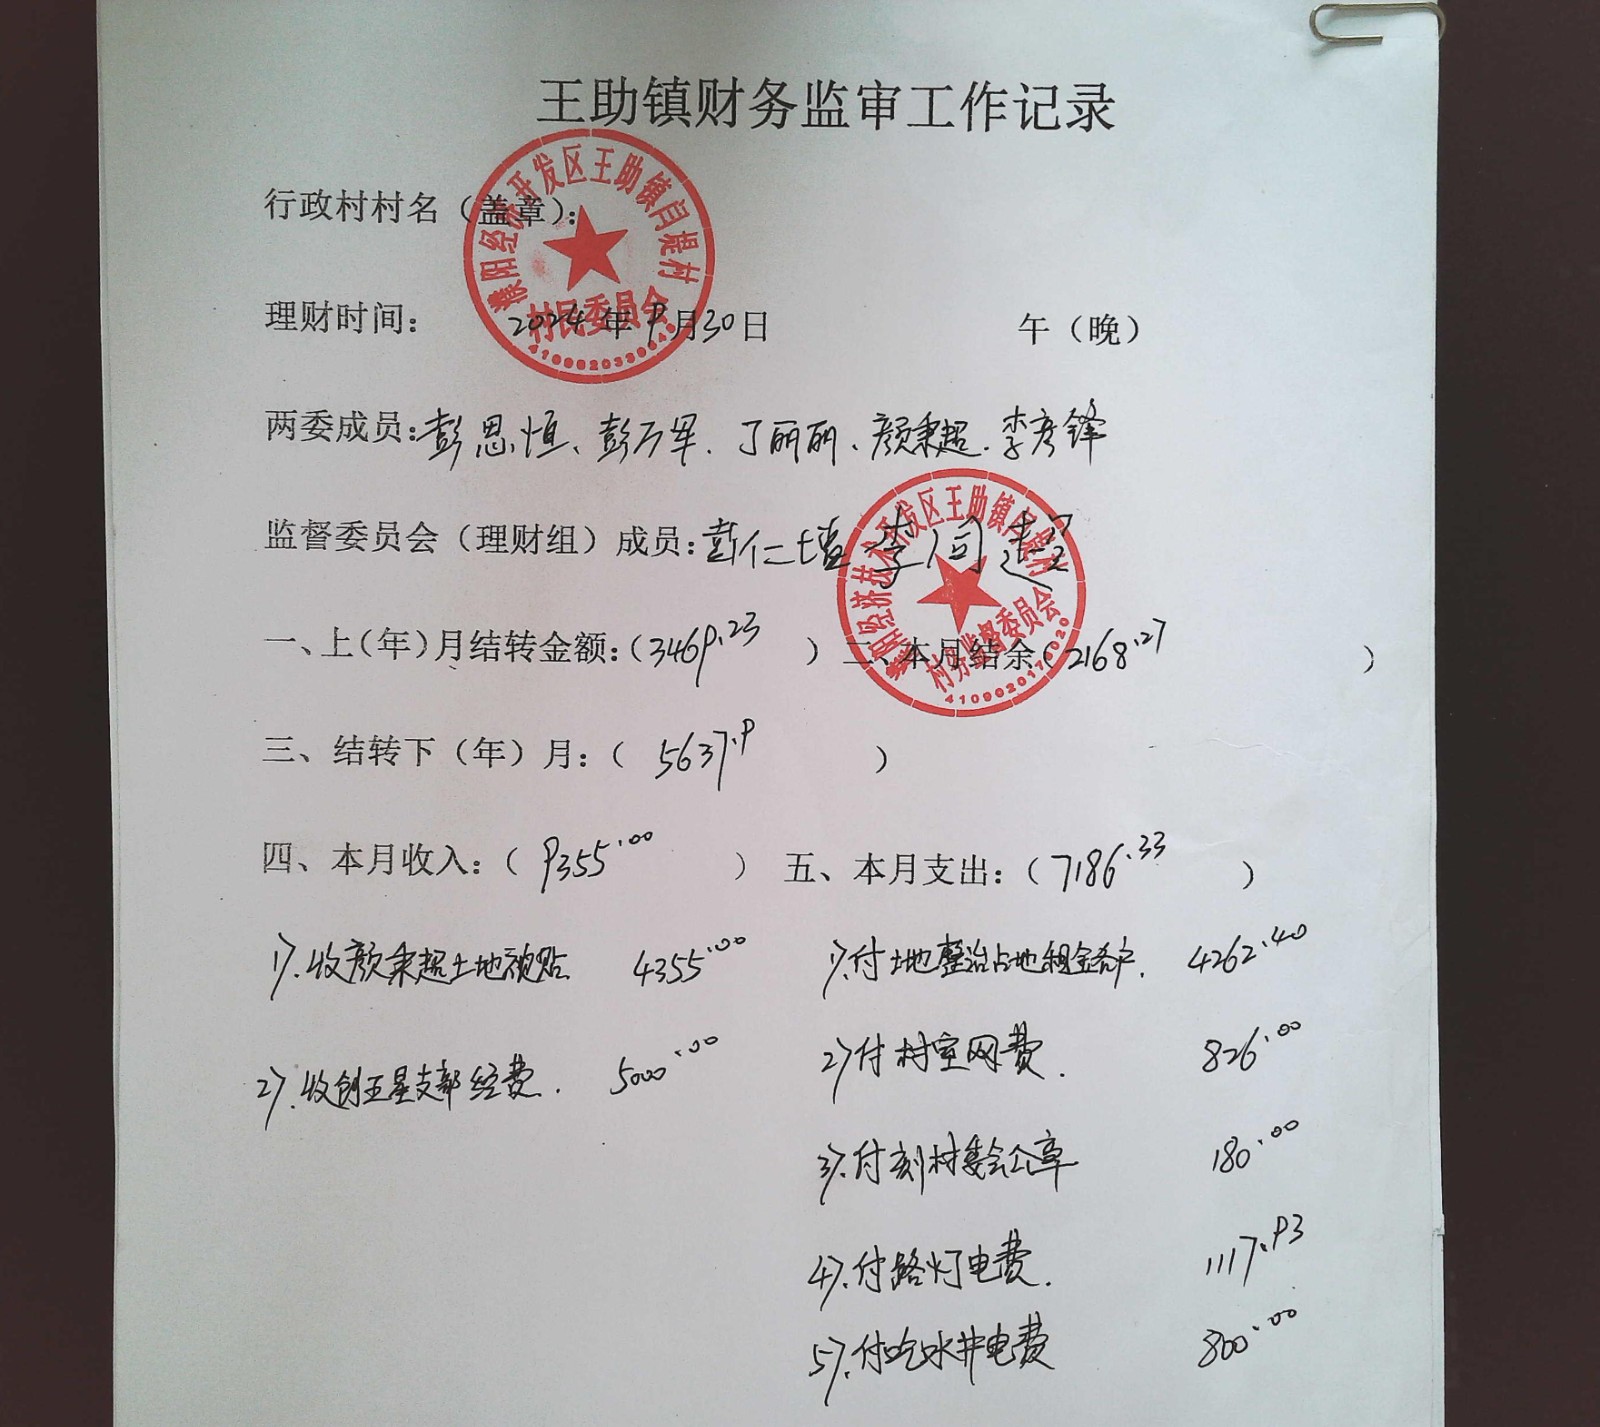 王助镇财务监审工作记录
行政村村名（盖章）：
濮阳经济开发区王助镇闫堤村
村民委员会
理财时间： 2024年9月30日 午（晚）
两委成员：彭思恒、彭万军、丁丽丽、颜秉超、李彦锋
监督委员会（理财组）成员：彭仁增 李同超
村务监督委员会
4109020170020
一、上（年）月结转金额：（3469.23 ） 二、本月结余（2168.27 ）
三、结转下（年）月：（ 5637.9 ）
四、本月收入：（ 9355.00 ） 五、本月支出：（7186.33 ）
1）.收颜秉超土地补贴 4355.00 1）.付土地整治占地租金各户. 4262.40
2）.收创五星支部经费. 5000.00 2）付村室网费. 826.00
3）.付刻村委会公章 180.00
4）.付路灯电费. 1117.93
5）.付吃水井电费 800.00